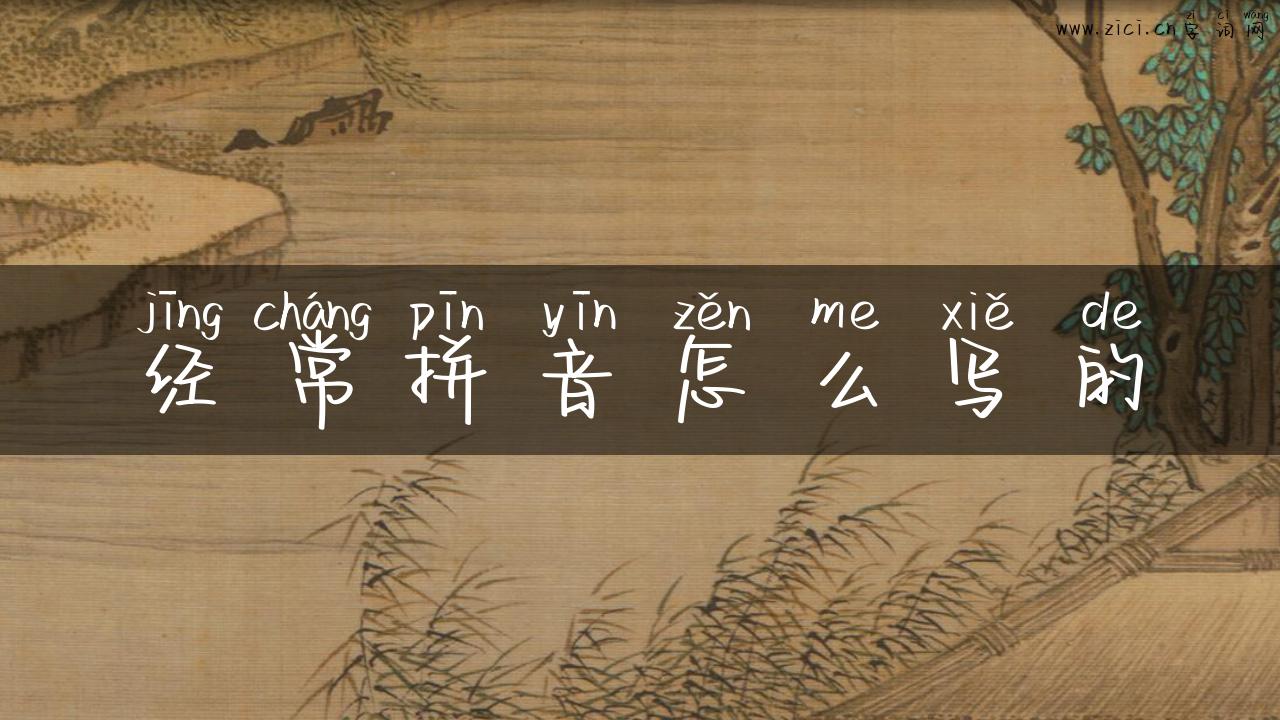 zì cí wǎng
www.zici.cn字词网
jīng cháng pīn yīn zěn me xiě de
经常拼音怎么写的